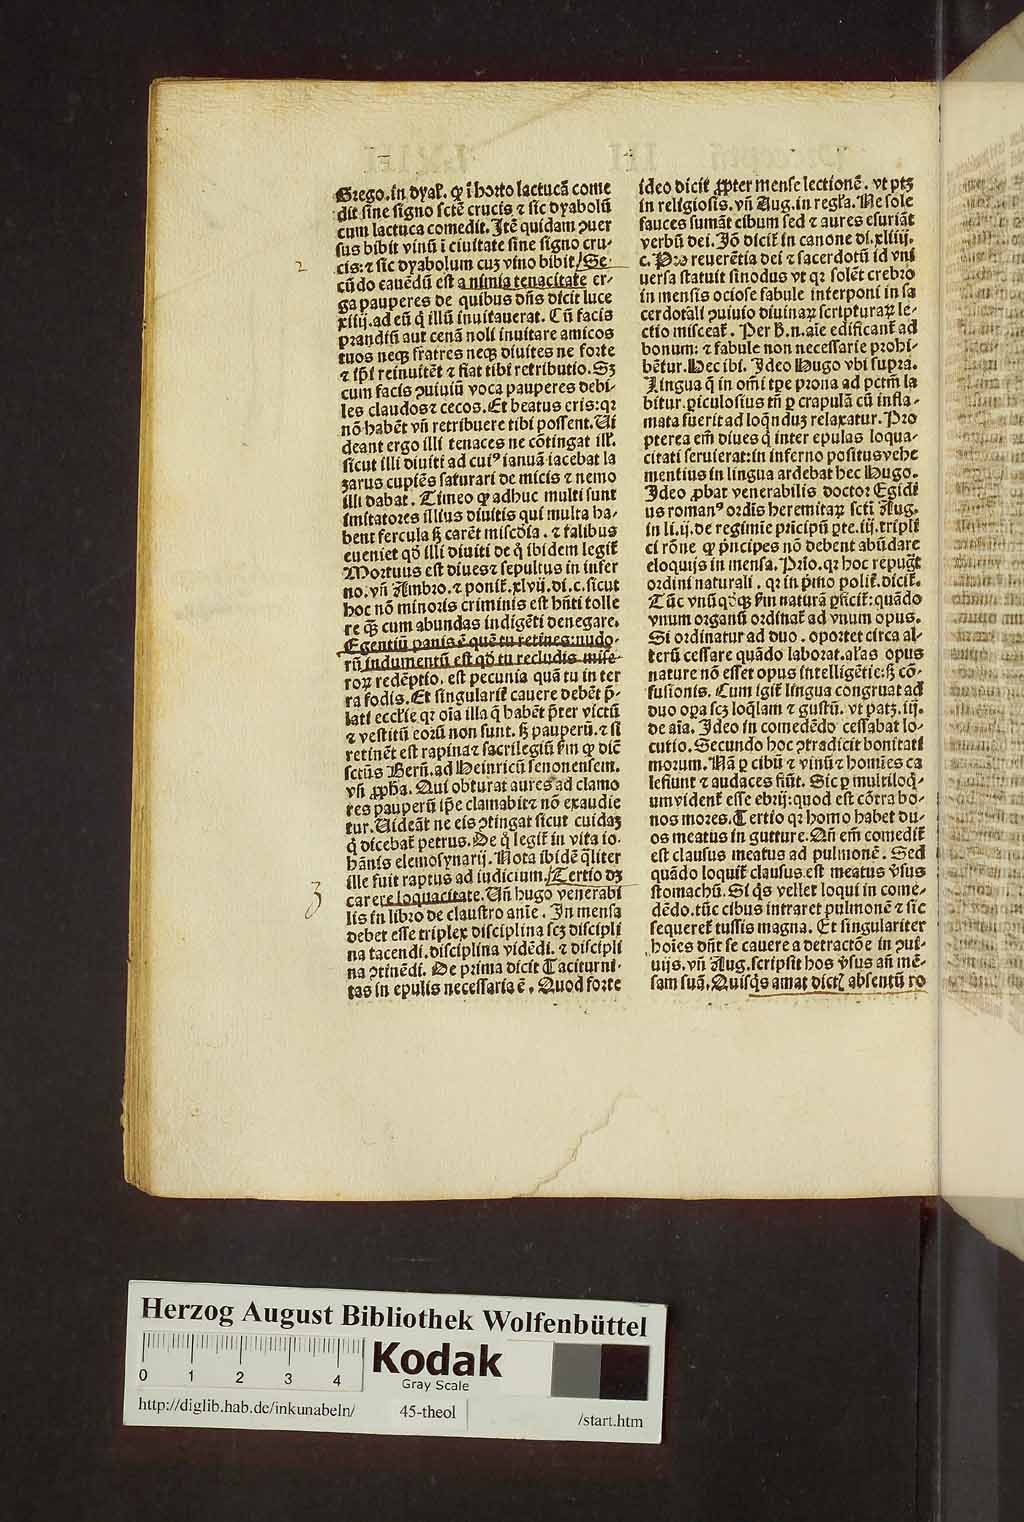 Grego.in dyal̃. ꝙ ĩ horto lactucã come
dit sine signo sctẽ crucis ⁊ sic dyabolũ
cum lactuca comedit. Itẽ quidam ꝯuer
sus bibit vinũ ĩ ciuitate sine signo cru-
2
cis:⁊ sic dyabolum cuꝫ vino bibit/Se-
cũdo cauẽdũ est a nimia tenacitate er-
ga pauperes de quibus dñs dicit luce
xiiij.ad eũ q̇ illũ inuitauerat. Cũ facis
prandiũ aut cenã noli inuitare amicos
tuos neqꝫ fratres neqꝫ diuites ne forte
⁊ ip̃i reinuitẽt ⁊ fiat tibi retributio.Sꝫ
cum facis ꝯuiuiũ voca pauperes debi-
les claudos⁊ cecos.Et beatus eris:qꝛ
nõ habẽt vñ retribuere tibi possent.Ui
deant ergo illi tenaces ne cõtingat ill̃.
sicut illi diuiti ad cui⁹ ianuã iacebat la
zarus cupiẽs saturari de micis ⁊ nemo
illi dabat. Timeo ꝙ adhuc multi sunt
imitatores illius diuitis qui multa ha-
bent fercula ſꝫ carẽt misc̃dia. ⁊ talibus
eueniet qď illi diuiti de q̇ ibidem legit̃
Mortuus est diues⁊ sepultus in infer
no.vñ Ambro.⁊ ponit̃.xlvij.di.c.sicut
hoc nõ minoris criminis est hñti tolle
re qꝫ cum abundas indigẽti denegare.
Egentiũ panis ẽ quẽ tu retines:nudo-
rũ indumentũ est qď tu recludis mise-
roꝝ redẽptio.est pecunia quã tu in ter
ra fodis.Et singularit̃ cauere debẽt p̃-
lati ecclie qꝛ oĩa illa q̇ habẽt p̃ter victũ
⁊ vestitũ eorũ non sunt.ſꝫ pauperũ.⁊ si
retinẽt est rapina⁊ sacrilegiũ ẜm ꝙ dic̃
sctũs Berñ.ad Heinricũ senonensem.
vñ ꝓph̃a. Qui obturat aures ad clamo
res pauperũ ip̃e clamabit⁊ nõ exaudie
tur.Uideãt ne eis ꝯtingat sicut cuidaꝫ
q̇ dicebat̃ petrus.De q̇ legit̃ in vita io-
hãnis elemosynarij.Nota ibidẽ q̃liter
ille fuit raptus ad iudicium./Tertio dꝫ
3
carere loquacitate.Uñ hugo venerabi
lis in libro de claustro anĩe. In mensa
debet esse triplex disciplina scꝫ discipli
na tacendi.disciplina vidẽdi.⁊ discipli
na ꝯtinẽdi. De prima dicit Taciturni-
tas in epulis necessaria ẽ. Quod forte
ideo dicit̃ ꝓpter mense lectionẽ. vt ptꝫ
in religiosis.vñ Aug.in regl̃a.Ne sole
fauces sumãt cibum sed ⁊ aures esuriãt
verbũ dei. Jõ dicit̃ in canone di.xliiij.
c. Pro reuerẽtia dei ⁊ sacerdotũ id vni
uersa statuit sinodus vt qꝛ solẽt crebro
in mensis ociose fabule interponi in sa
cerdotali ꝯuiuio diuinaꝝ scripturaꝝ le-
ctio misceat̃. Per ħ.n.aĩe edificant̃ ad
bonum: ⁊ fabule non necessarie prohi-
bẽtur.Hec ibi. Ideo Hugo vbi supra.
Lingua q̇ in om̃i tꝑe prona ad pctm̃ la
bitur.ꝑiculosius tñ ꝑ crapulã cũ infla-
mata fuerit ad loq̃nduꝫ relaxatur.Pro
pterea em̃ diues q̇ inter epulas loqua-
citati seruierat:in inferno positus vehe
mentius in lingua ardebat hec Hugo.
Ideo ꝓbat venerabilis doctor Egidi
us roman⁹ ordĩs heremitaꝝ scti Aug.
in li.ij.de regimĩe p̃ncipũ ꝑte.iij.tripli
ci rõne ꝙ p̃ncipes nõ debent abũdare
eloquijs in mensa. Prĩo.qꝛ hoc repugt̃
ordini naturali. qꝛ in p̃mo polit̃.dicit̃.
Tũc vnũqď qꝫ ẜm naturã ꝑficit̃:quãdo
vnum organũ ordinat̃ ad vnum opus.
Si ordinatur ad duo. oportet circa al-
terũ cessare quãdo laborat.al̃as opus
nature nõ esset opus intelligẽtie:ſꝫ cõ-
fusionis. Cum igit̃ lingua congruat ad
duo oꝑa scꝫ loq̃lam ⁊ gustũ. vt patꝫ.iij.
de aĩa. Ideo in comedẽdo cessabat lo-
cutio. Secundo hoc ꝯtradicit bonitati
morum.Nã ꝑ cibũ ⁊ vinũ⁊ homĩes ca
lefiunt ⁊ audaces fiũt. Sic ꝑ multiloq̇-
um vident̃ esse ebrij:quod est cõtra bo-
nos mores.Tertio qꝛ homo habet du-
os meatus in gutture. Qñ em̃ comedit̃
est clausus meatus ad pulmonẽ. Sed
quãdo loquit̃ clausus est meatus ṽsus
stomachũ. Si q̇s vellet loqui in come-
dẽdo.tũc cibus intraret pulmonẽ ⁊ sic
sequeret̃ tussis magna. Et singulariter
hoĩes dñt se cauere a detractõe in ꝯui-
uijs.vñ Aug.scripsit hos ṽsus añ mẽ-
sam suã.Quisq̇s amat dictꝭ absentũ ro
Herzog August Bibliothek Wolfenbüttel
0 1 2 3 4
Kodak
Gray Scale
http://diglib.hab.de/inkunabeln/ 45-theol /start.htm